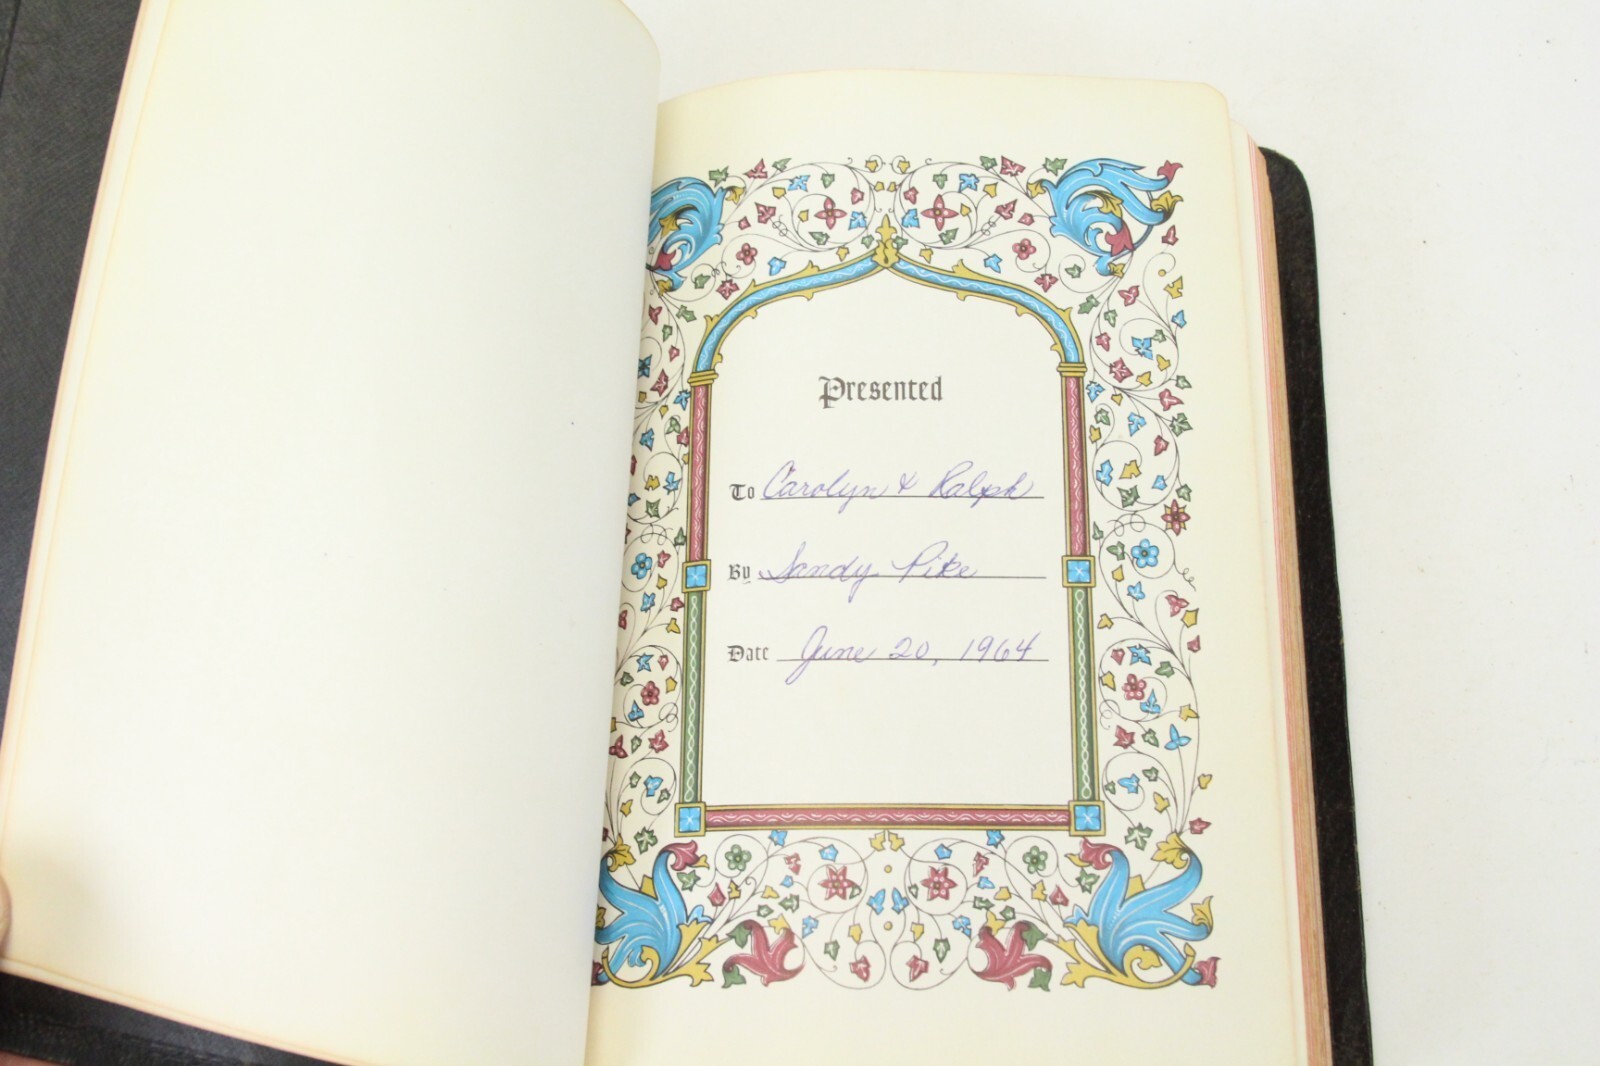 Presented
To Carolyn & Ralph
By Sandy Pike
Date June 20, 1964